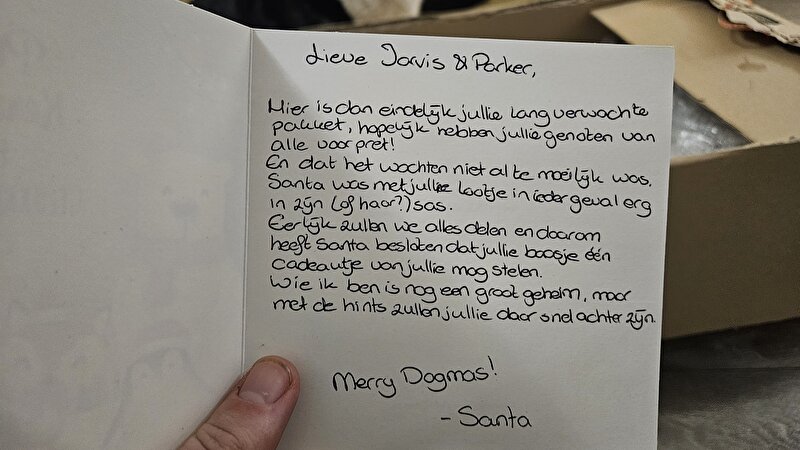 Lieve Jarvis & Parker,
Hier is dan eindelijk jullie lang verwachte
pakket, hopelijk hebben jullie genoten van
alle voorpret!
En dat het wachten niet al te moeilijk was.
Santa was met jullie lootje in ieder geval erg
in zijn (of haar?) sas.
Eerlijk zullen we alles delen en daarom
heeft Santa besloten dat jullie baasje één
cadeautje van jullie mag stelen.
Wie ik ben is nog een groot geheim, maar
met de hints zullen jullie daar snel achter zijn.
Merry Dogmas!
- Santa